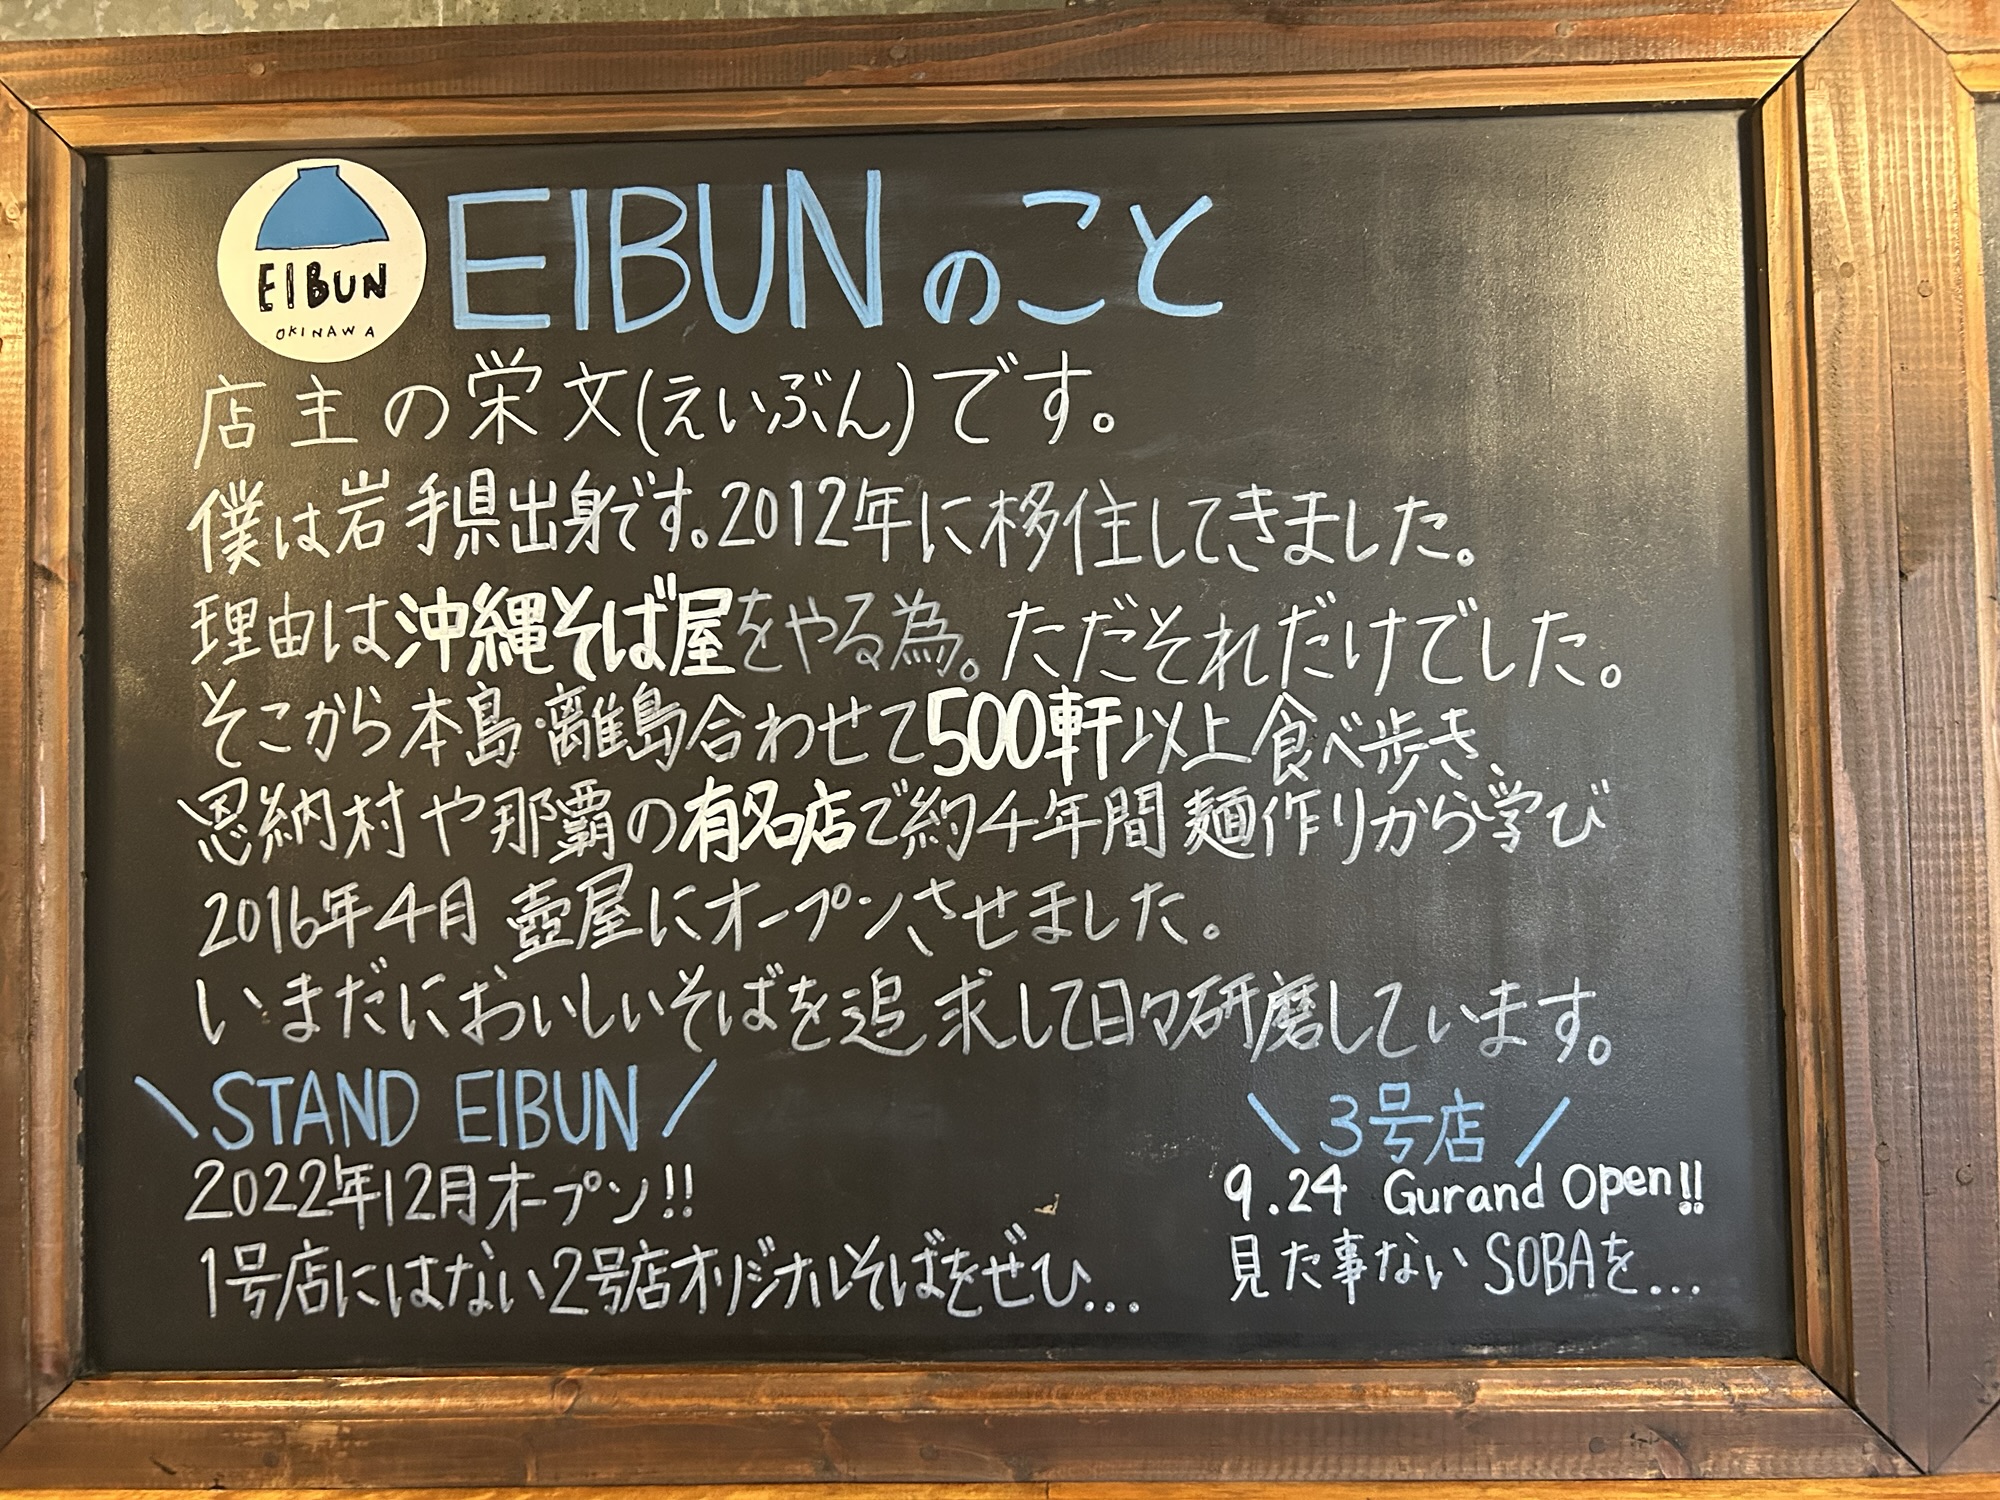 EIBUN
OKINAWA
EIBUNのこと
店主の栄文(えいぶん)です。
僕は岩手県出身です。2012年に移住してきました。
理由は沖縄そば屋をやる為。ただそれだけでした。
そこから本島・離島合わせて500軒以上食べ歩き、
恩納村や那覇の有名店で約4年間麺作りから学び
2016年4月 壺屋にオープンさせました。
いまだにおいしいそばを追求して日々研磨しています。
\ STAND EIBUN /
2022年12月オープン!!
1号店にはない2号店オリジナルそばをぜひ...
\ 3号店 /
9.24 Gurand Open!!
見た事ないSOBAを...